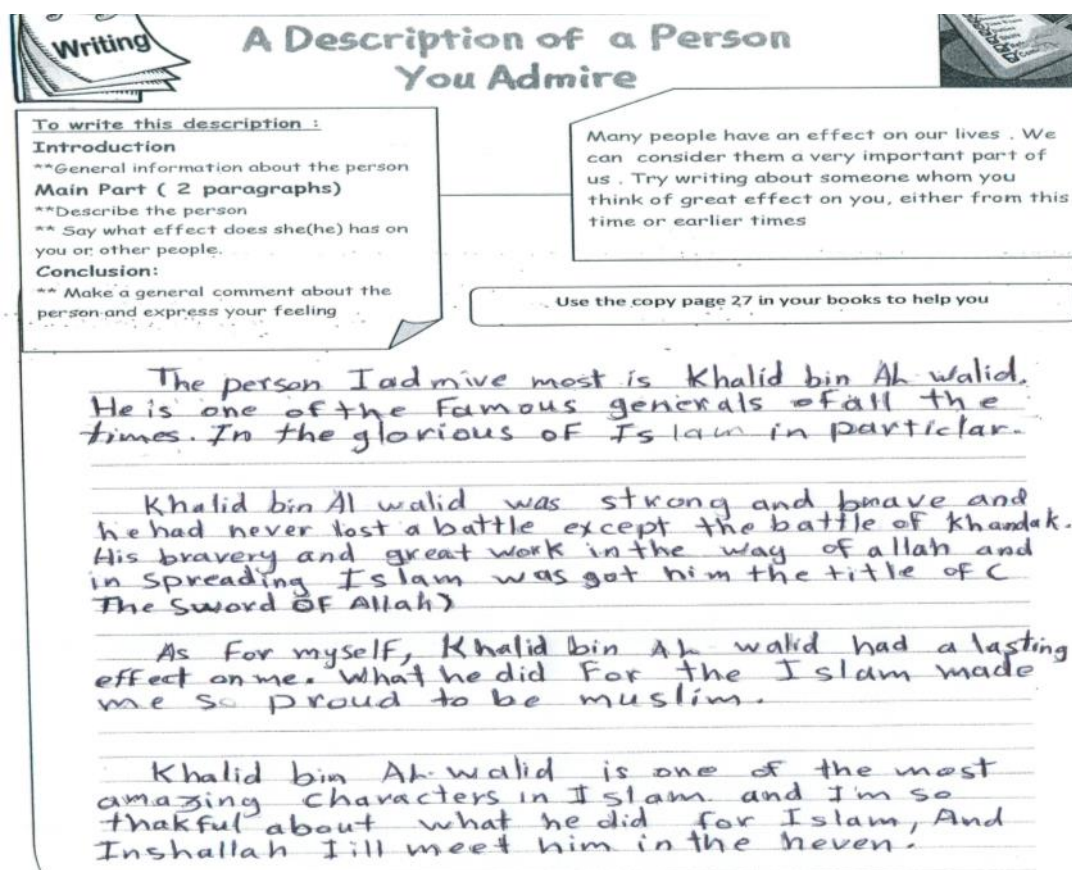 Writing
A Description of a Person
You Admire
To write this description :
Introduction
**General information about the person
Main Part ( 2 paragraphs)
**Describe the person
** Say what effect does she(he) has on
you or other people.
Conclusion:
** Make a general comment about the
person and express your feeling
Many people have an effect on our lives . We
can consider them a very important part of
us . Try writing about someone whom you
think of great effect on you, either from this
time or earlier times
Use the copy page 27 in your books to help you
The person I admire most is Khalid bin Al walid.
He is one of the Famous generals of all the
times. In the glorious of Islam in particlar.
Khalid bin Al walid was strong and brave and
he had never lost a battle except the battle of Khandak.
His bravery and great work in the way of allah and
in spreading Islam was got him the title of (
The Sword OF Allah)
As For myself, Khalid bin Al walid had a lasting
effect on me. What he did For the Islam made
me so proud to be muslim.
Khalid bin Al-walid is one of the most
amazing characters in Islam and I'm so
thakful about what he did for Islam, And
Inshallah I ill meet him in the heven.